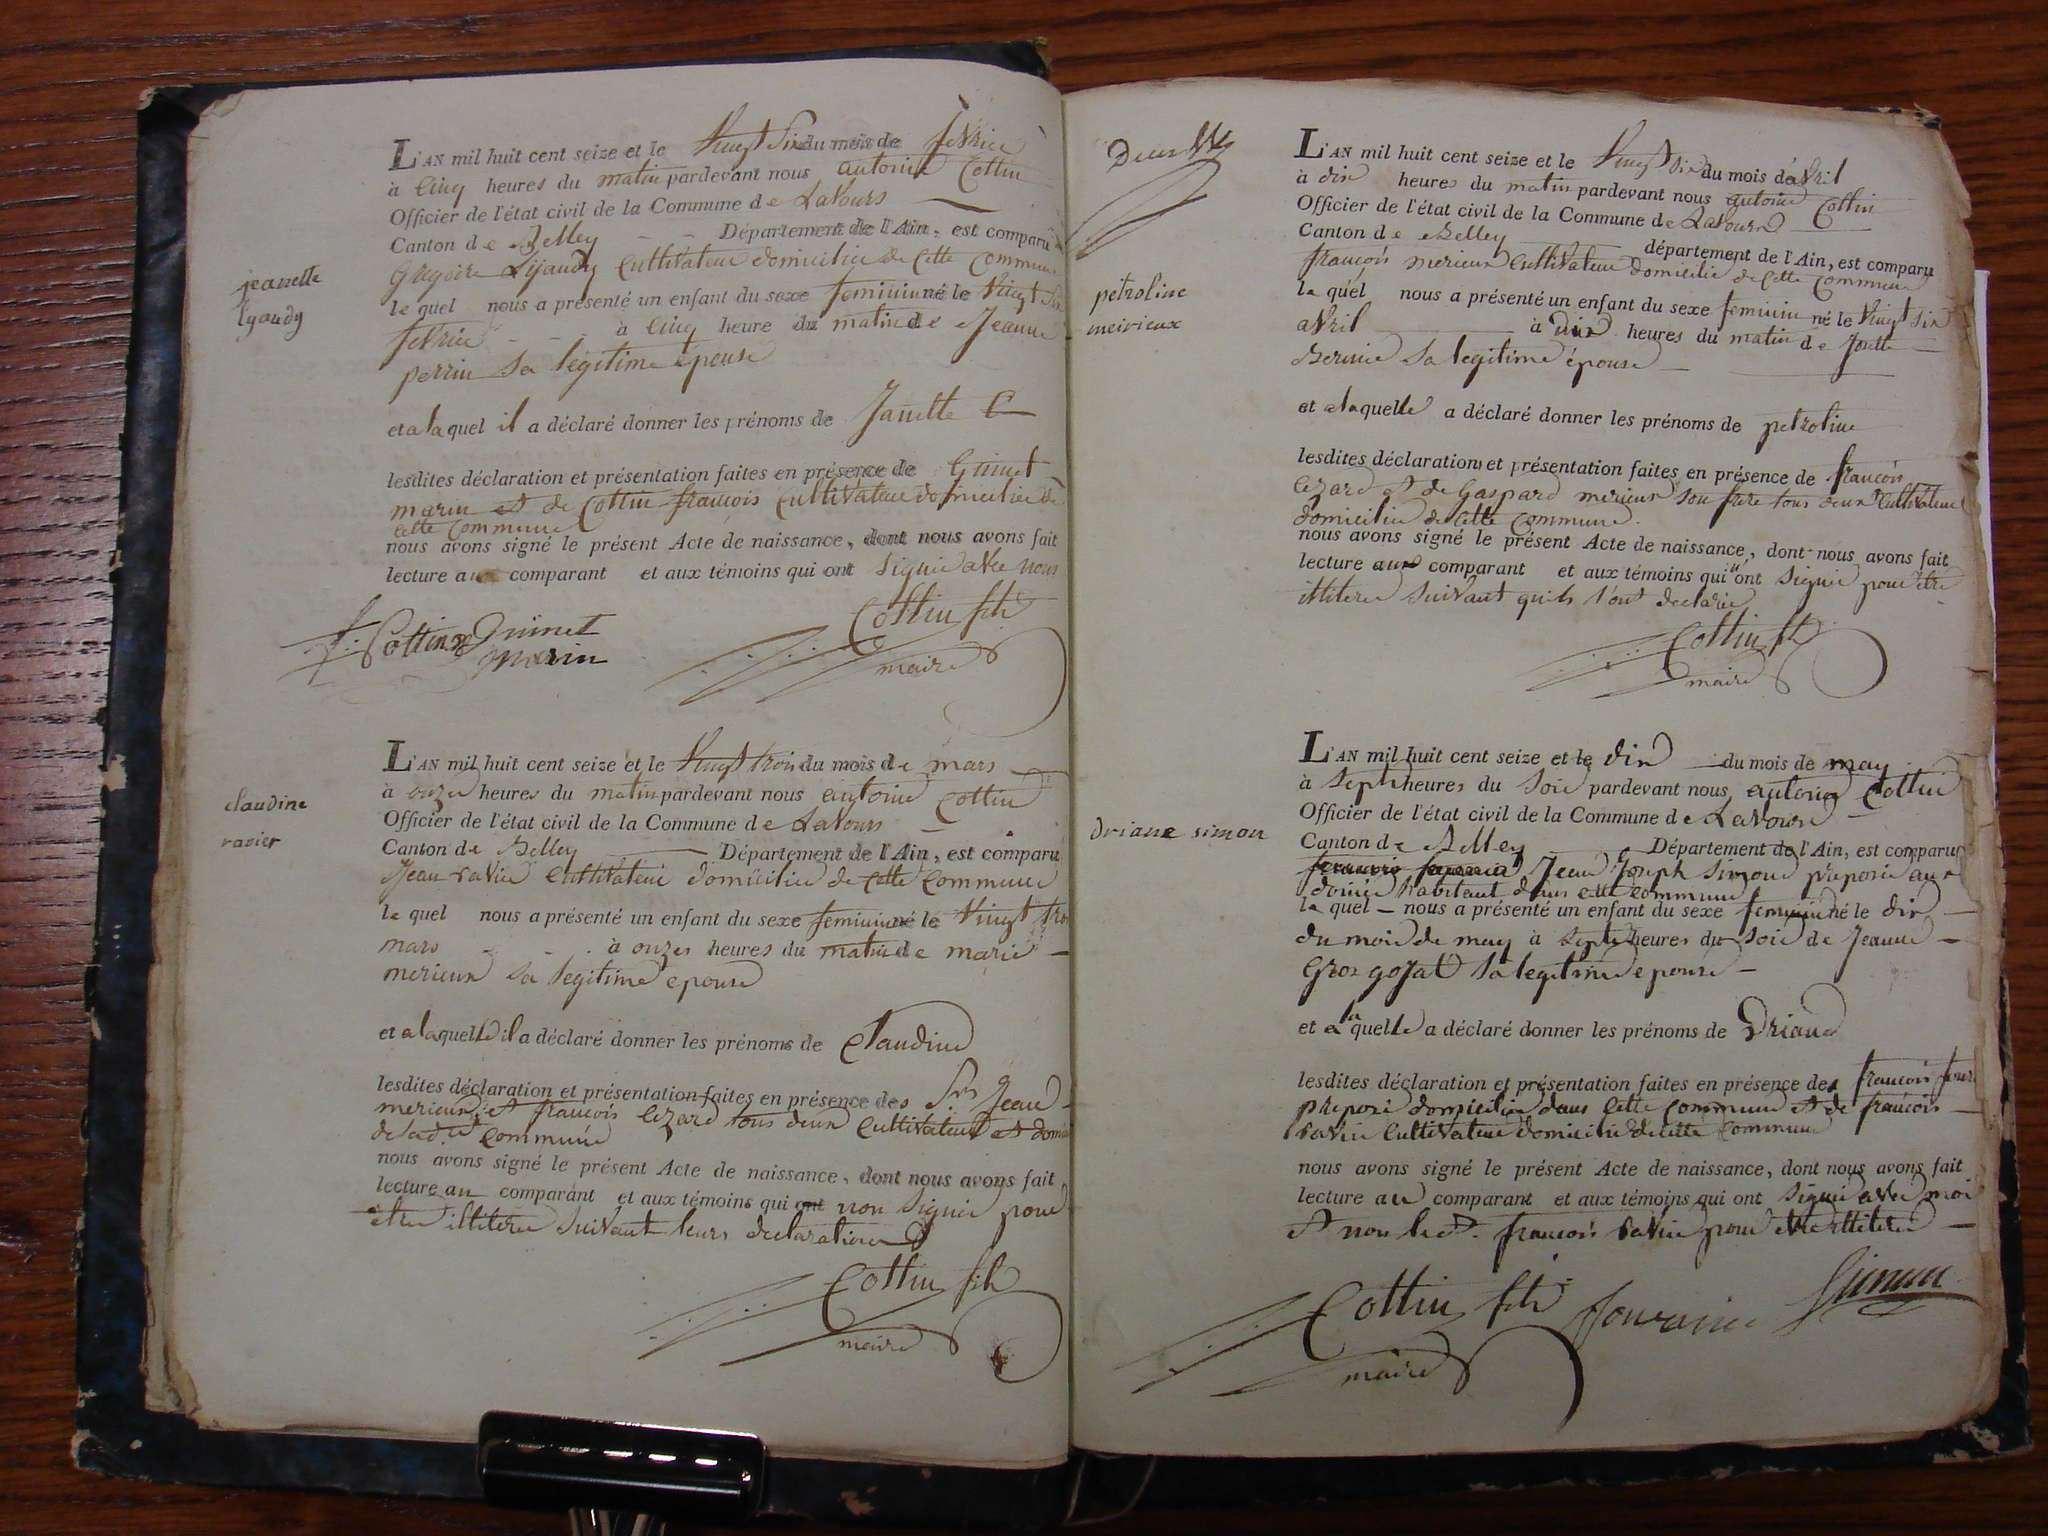 L'AN mil huit cent seize et le Vingt Six du mois de fevrier
à Cinq heures du matin pardevant nous antoine Cottin
Officier de l'état civil de la Commune de Lavours
Canton de Belley Département de l'Ain, est comparu
Gregoire Ligaudy Cultivateur domicilie de Cette Commune
jeanette
lgaudy
le quel nous a présenté un enfant du sexe feminin né le Vingt Six
fevrier à Cinq heure du matin de Jeanne
perrin sa légitime épouse
et a laquel il a déclaré donner les prénoms de Janette
lesdites déclaration et présentation faites en présence de Guinet
marin et de Cottin françois Cultivateur domicilie de
Cette Commune
nous avons signé le présent Acte de naissance, dont nous avons fait
lecture aux comparant et aux témoins qui ont Signie avec nous
f. Cottin Guinet marin
Cottin fils
maire
L'AN mil huit cent seize et le Vingt trois du mois de mars
à onzes heures du matin pardevant nous antoine Cottin
claudine
ravier
Officier de l'état civil de la Commune de Lavours
Canton de Belley Département de l'Ain, est comparu
Jean ravier Cultivateur domicilie de Cette Commune
le quel nous a présenté un enfant du sexe feminin né le Vingt trois
mars à onzes heures du matin de marie
merieux sa legitime epouse
et a laquelle il a déclaré donner les prénoms de Claudine
lesdites déclaration et présentation faites en présence des Srs Jean
merieux et françois Lezard tous deux Cultivateur et domicilie
de lad.te Commune
nous avons signé le présent Acte de naissance, dont nous avons fait
lecture au comparant et aux témoins qui ont non Signie pour
etre illitere Suivant leurs declarations
Cottin fils
maire
Deux
L'AN mil huit cent seize et le Vingt Six du mois de avril
à dix heures du matin pardevant nous antoine Cottin
Officier de l'état civil de la Commune de Lavours
Canton de Belley département de l'Ain, est comparu
françois merieux Cultivateur domicilie de Cette Commune
petroline
meirieux
le quel nous a présenté un enfant du sexe feminin né le Vingt Six
avril à dix heures du matin de Josette
Bernier Sa legitime épouse
et a laquelle a déclaré donner les prénoms de petroline
lesdites déclaration et présentation faites en présence de françois
Lezard et de Gaspard merieux son frere tous deux Cultivateur
domicilie de Cette Commune.
nous avons signé le présent Acte de naissance, dont nous avons fait
lecture aux comparant et aux témoins qui n'ont Signie pour être
illitere Suivant quils l'ont declarie
Cottin fils
maire
L'AN mil huit cent seize et le dix du mois de may
à Septs heures du Soir pardevant nous antoine Cottin
Officier de l'état civil de la Commune de Lavours
driane simon
Canton de Belley Département de l'Ain, est comparu
Jean Joseph Simon préposé aux
douane habitant dans cette commune
le quel nous a présenté un enfant du sexe feminin né le dix
du mois de may à Septs heures du Soir de Jeanne
Gros gojat Sa legitime epouse
et a laquelle a déclaré donner les prénoms de Driane
lesdites déclaration et présentation faites en présence de françois
préposé domicilie dans Cette Commune et de françois
ravier Cultivateur domicilie de cette Commune
nous avons signé le présent Acte de naissance, dont nous avons fait
lecture au comparant et aux témoins qui ont Signié avec moi
et non led. françois ravier pour etre illitere
Cottin fils Simon
maire